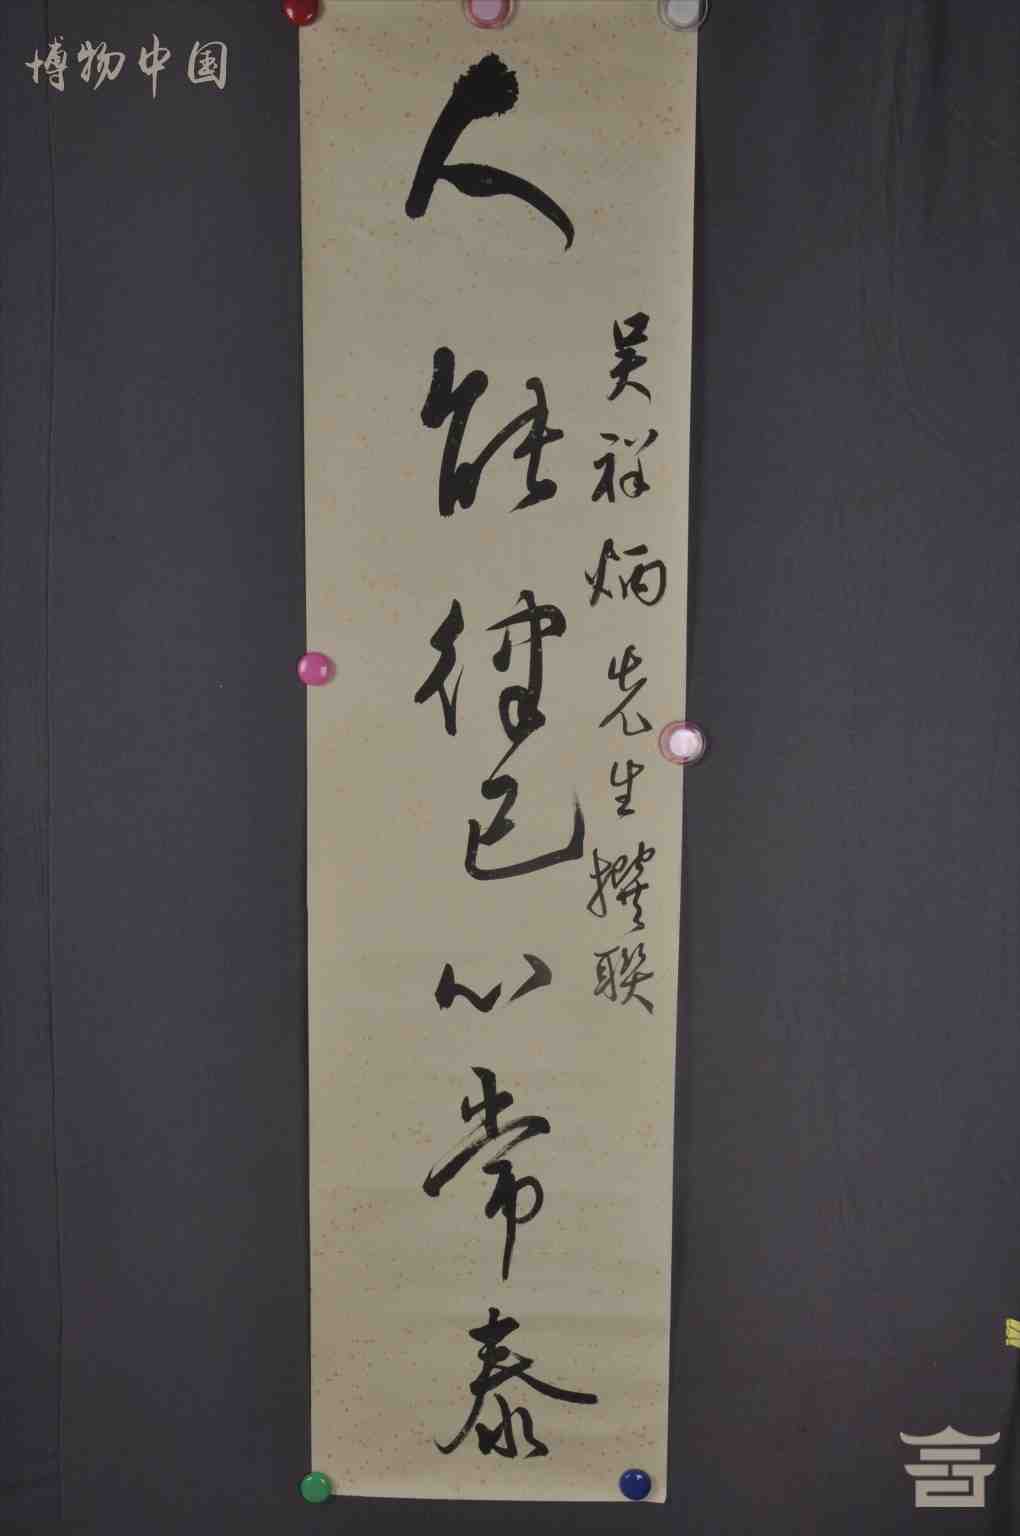 博物中国
吴祥炳先生撰联
人能律己心常泰